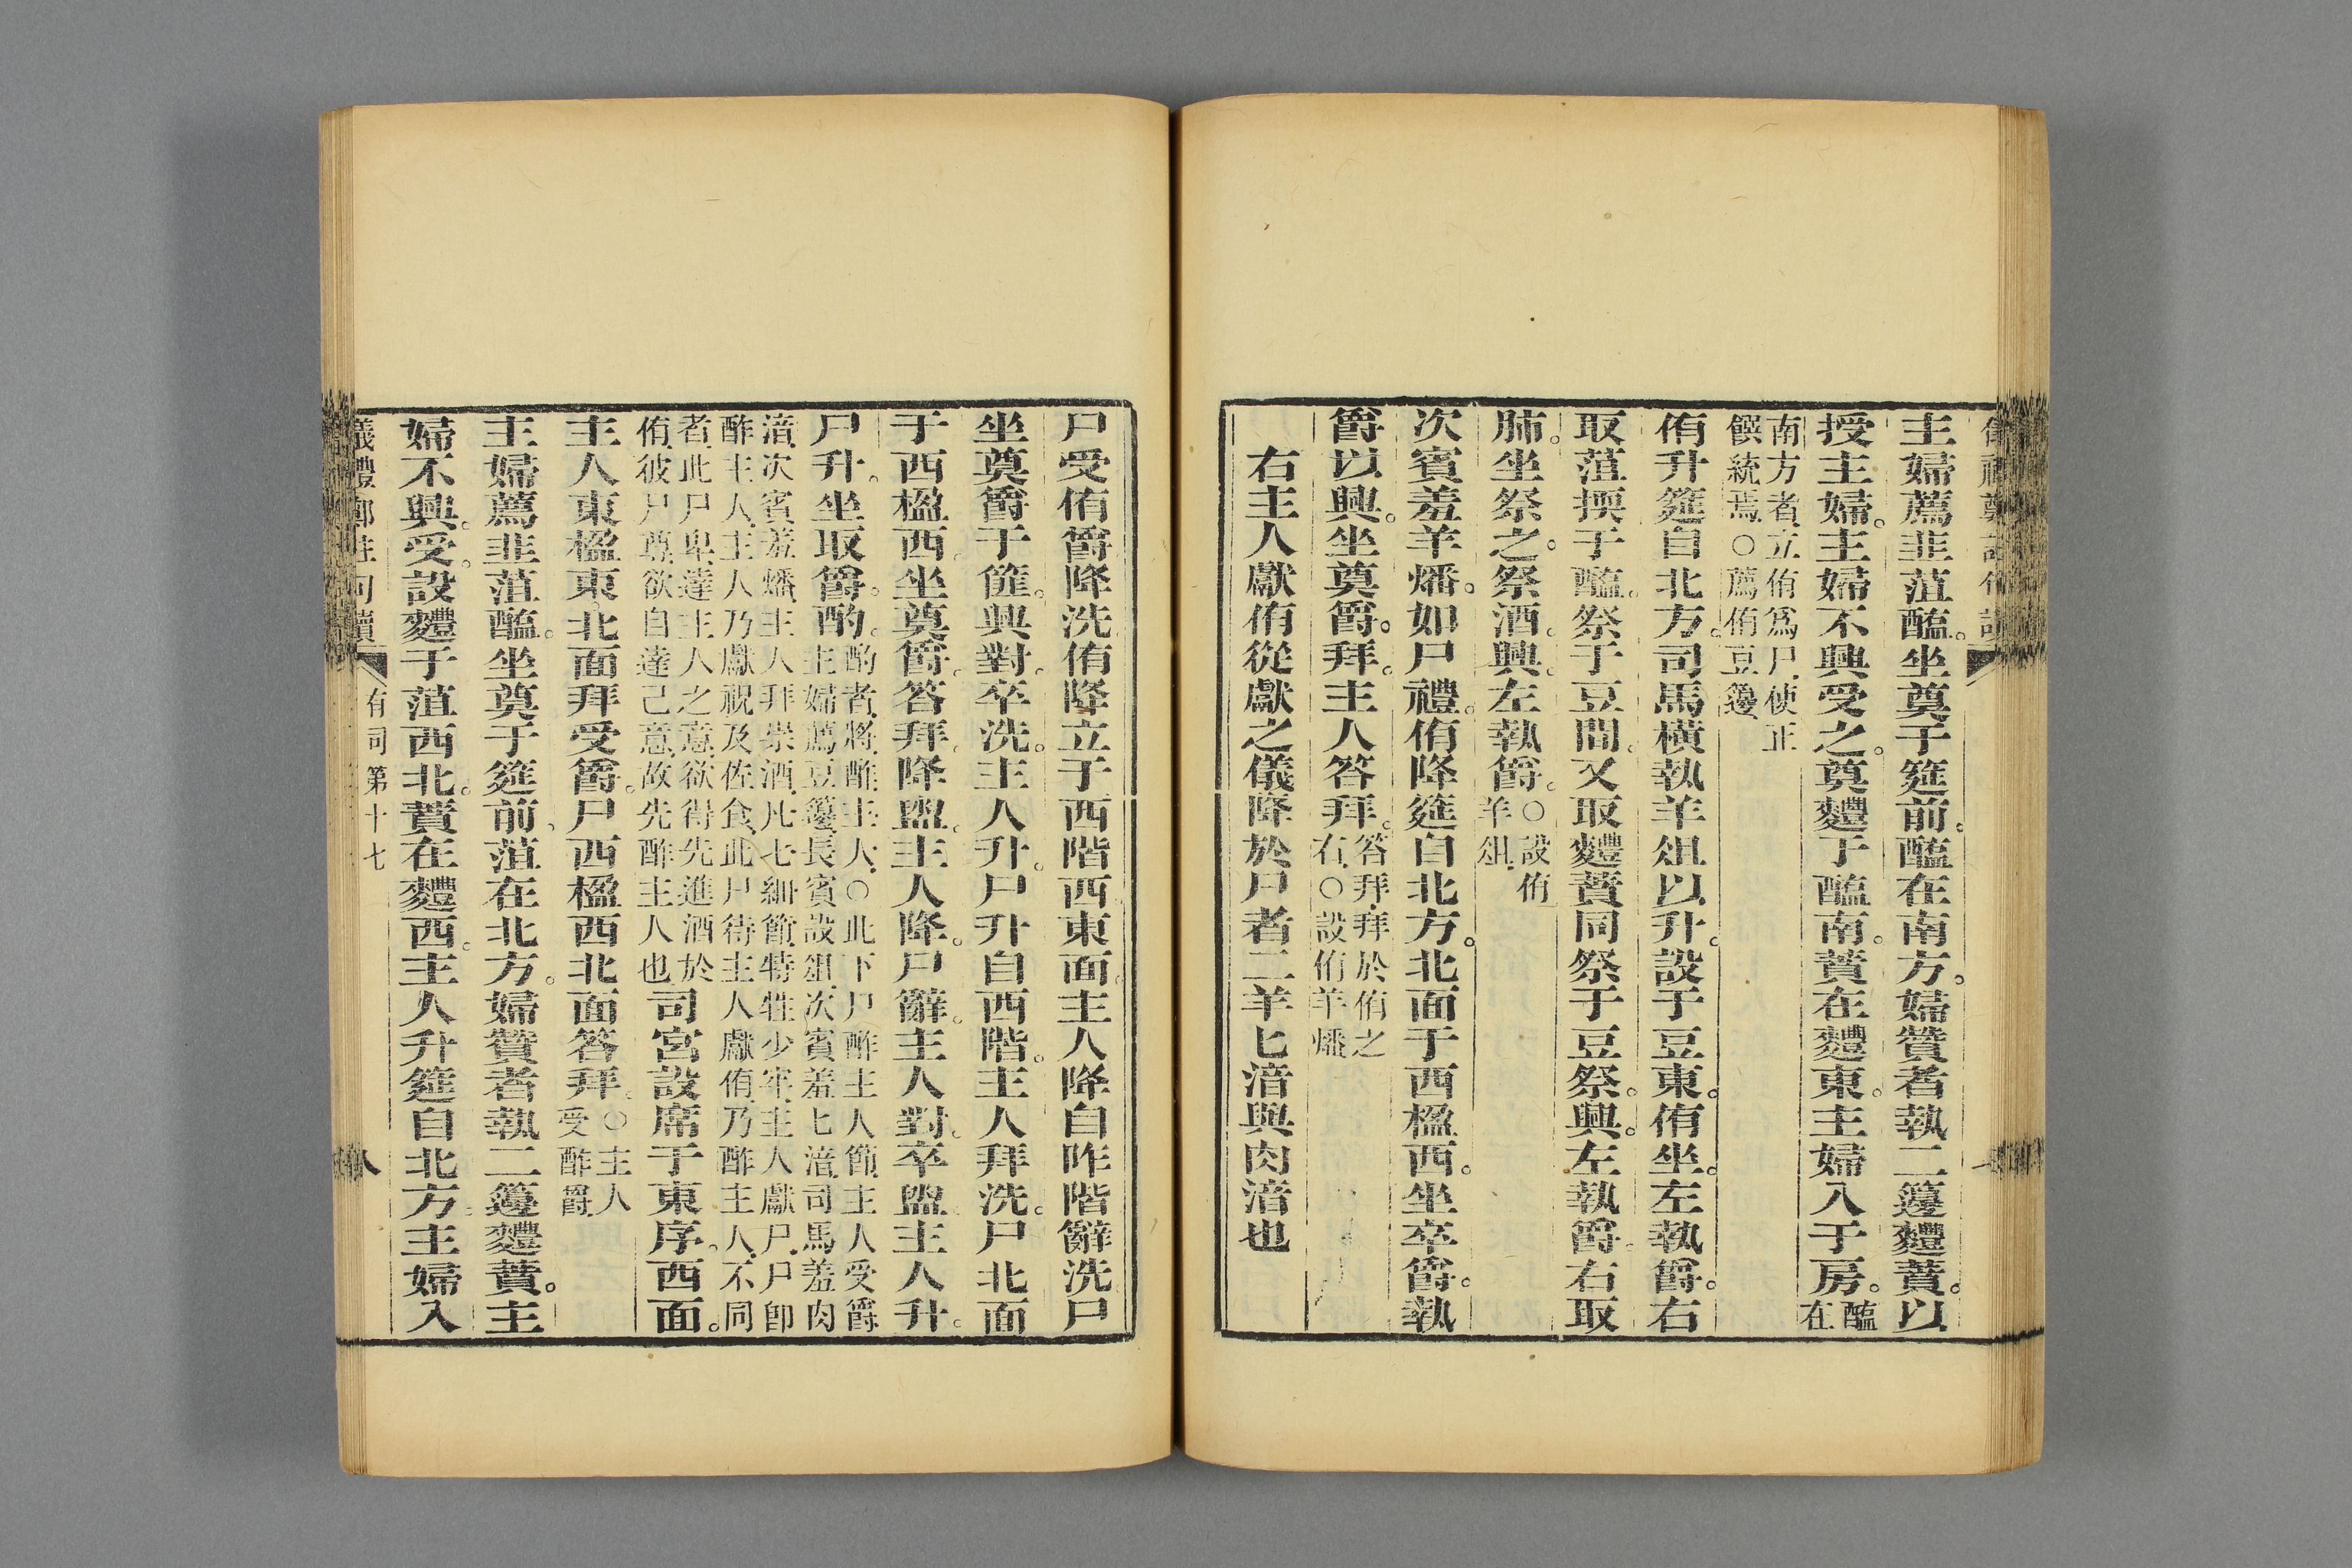 主婦薦韭菹醢。坐奠于筵前。醢在南方。婦贊者執二籩麷蕡。以
授主婦。主婦不興受之。奠麷于醢南。蕡在麷東。主婦入于房。醢在
南方者立侑爲尸使正
饌統焉○薦侑豆籩
侑升筵自北方。司馬橫執羊俎以升。設于豆東。侑坐。左執爵。右
取菹㨎于醢。祭于豆間。又取麷蕡同祭于豆祭。興。左執爵。右取
肺。坐祭之。祭酒。興。左執爵。○設侑羊俎
次賓羞羊燔。如尸禮。侑降筵自北方。北面于西楹西。坐卒爵。執
爵以興。坐奠爵。拜。主人答拜。答拜拜於侑之右○設侑羊燔
右主人獻侑從獻之儀降於尸者二羊匕湆與肉湆也
尸受侑爵降洗。侑降立于西階西。東面。主人降自阼階辭洗。尸
坐奠爵于篚。興對。卒洗。主人升。尸升自西階。主人拜洗。尸北面
于西楹西。坐奠爵。答拜。降盥。主人降。尸辭。主人對。卒盥。主人升。
尸升。坐取爵。酌。酌者將酢主人○此下尸酢主人節主人受爵
主婦薦豆籩長賓設俎次賓羞匕湆司馬羞肉
湆次賓羞燔主人拜崇酒凡七細節特牲少牢主人獻尸尸卽
酢主人主人乃獻祝及佐食此尸待主人獻侑乃酢主人不同
者此尸卑達主人之意欲得先進酒於
侑彼尸尊欲自達己意故先酢主人也
司宮設席于東序。西面。
主人東楹東北面拜受爵。尸西楹西北面答拜。○主人受酢爵
主婦薦韭菹醢。坐奠于筵前。菹在北方。婦贊者執二籩麷蕡。主
婦不興。受。設麷于菹西北。蕡在麷西。主人升筵自北方。主婦入
儀禮鄭註句讀
有司第十七
八